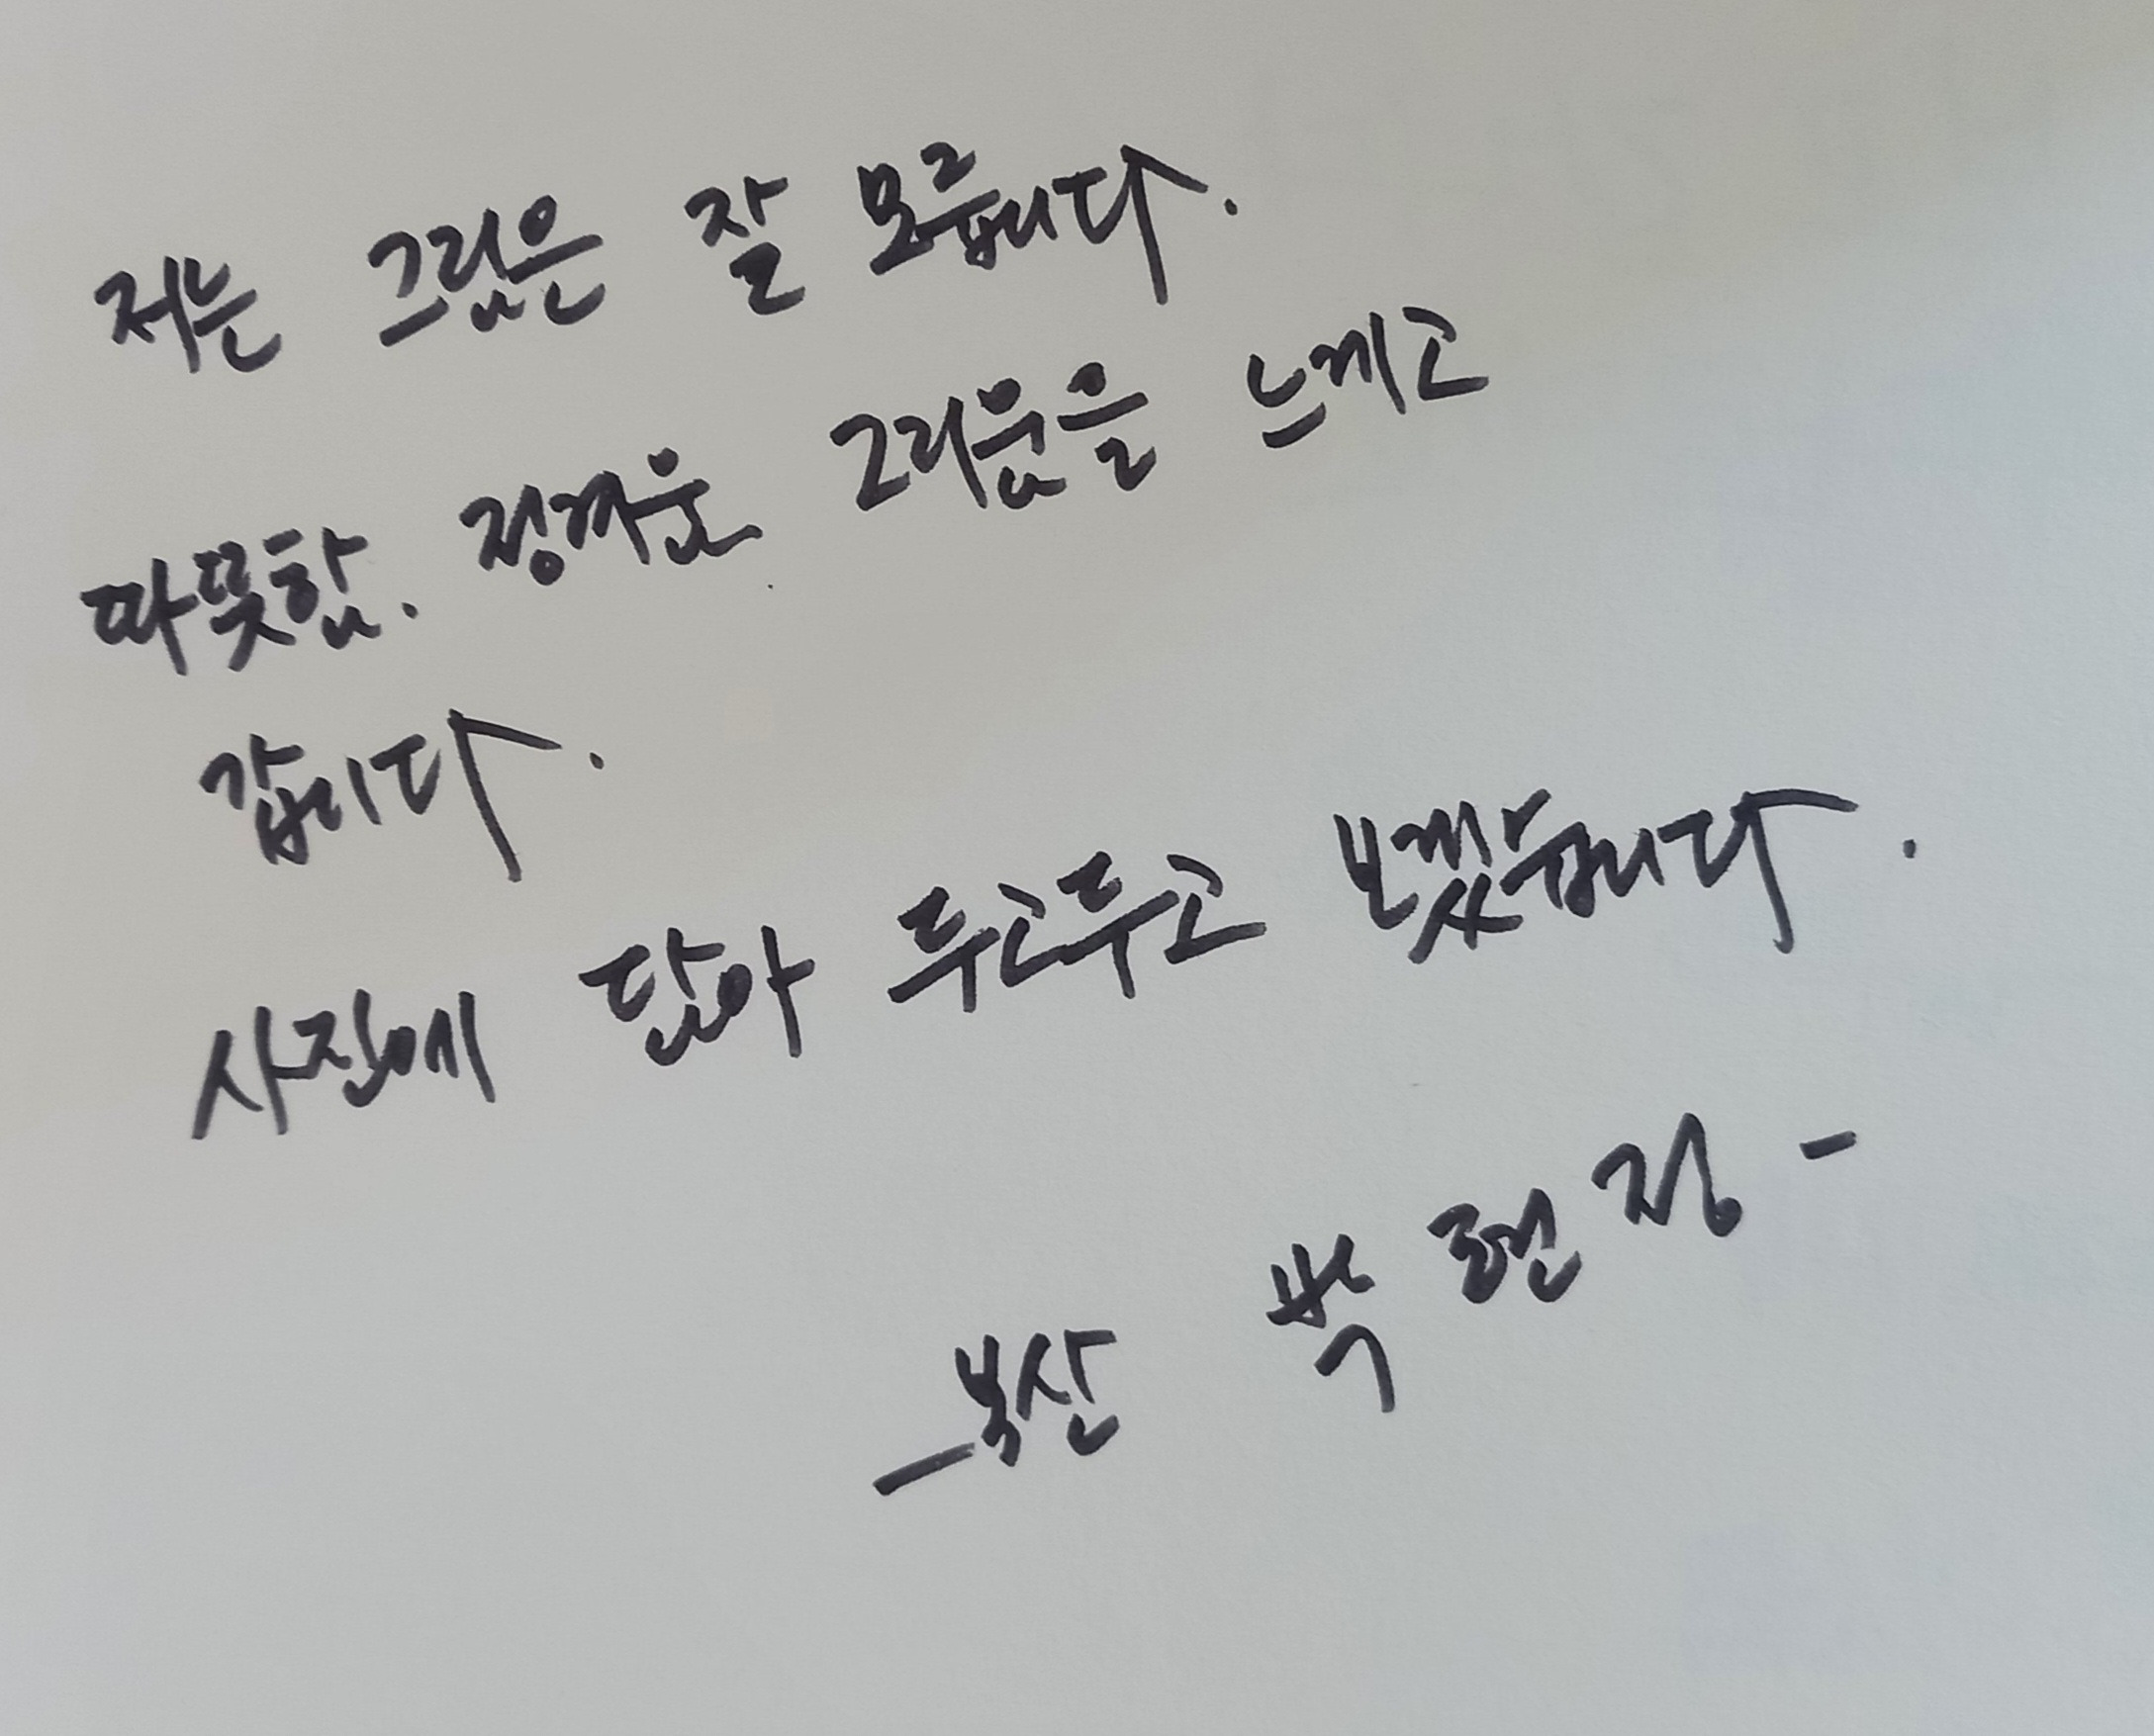 저는 그림은 잘 모릅니다.
따뜻함. 정겨운 그리움을 느끼고
갑니다.
사진에 담아 두고두고 보겠습니다.
부산 박현정 -